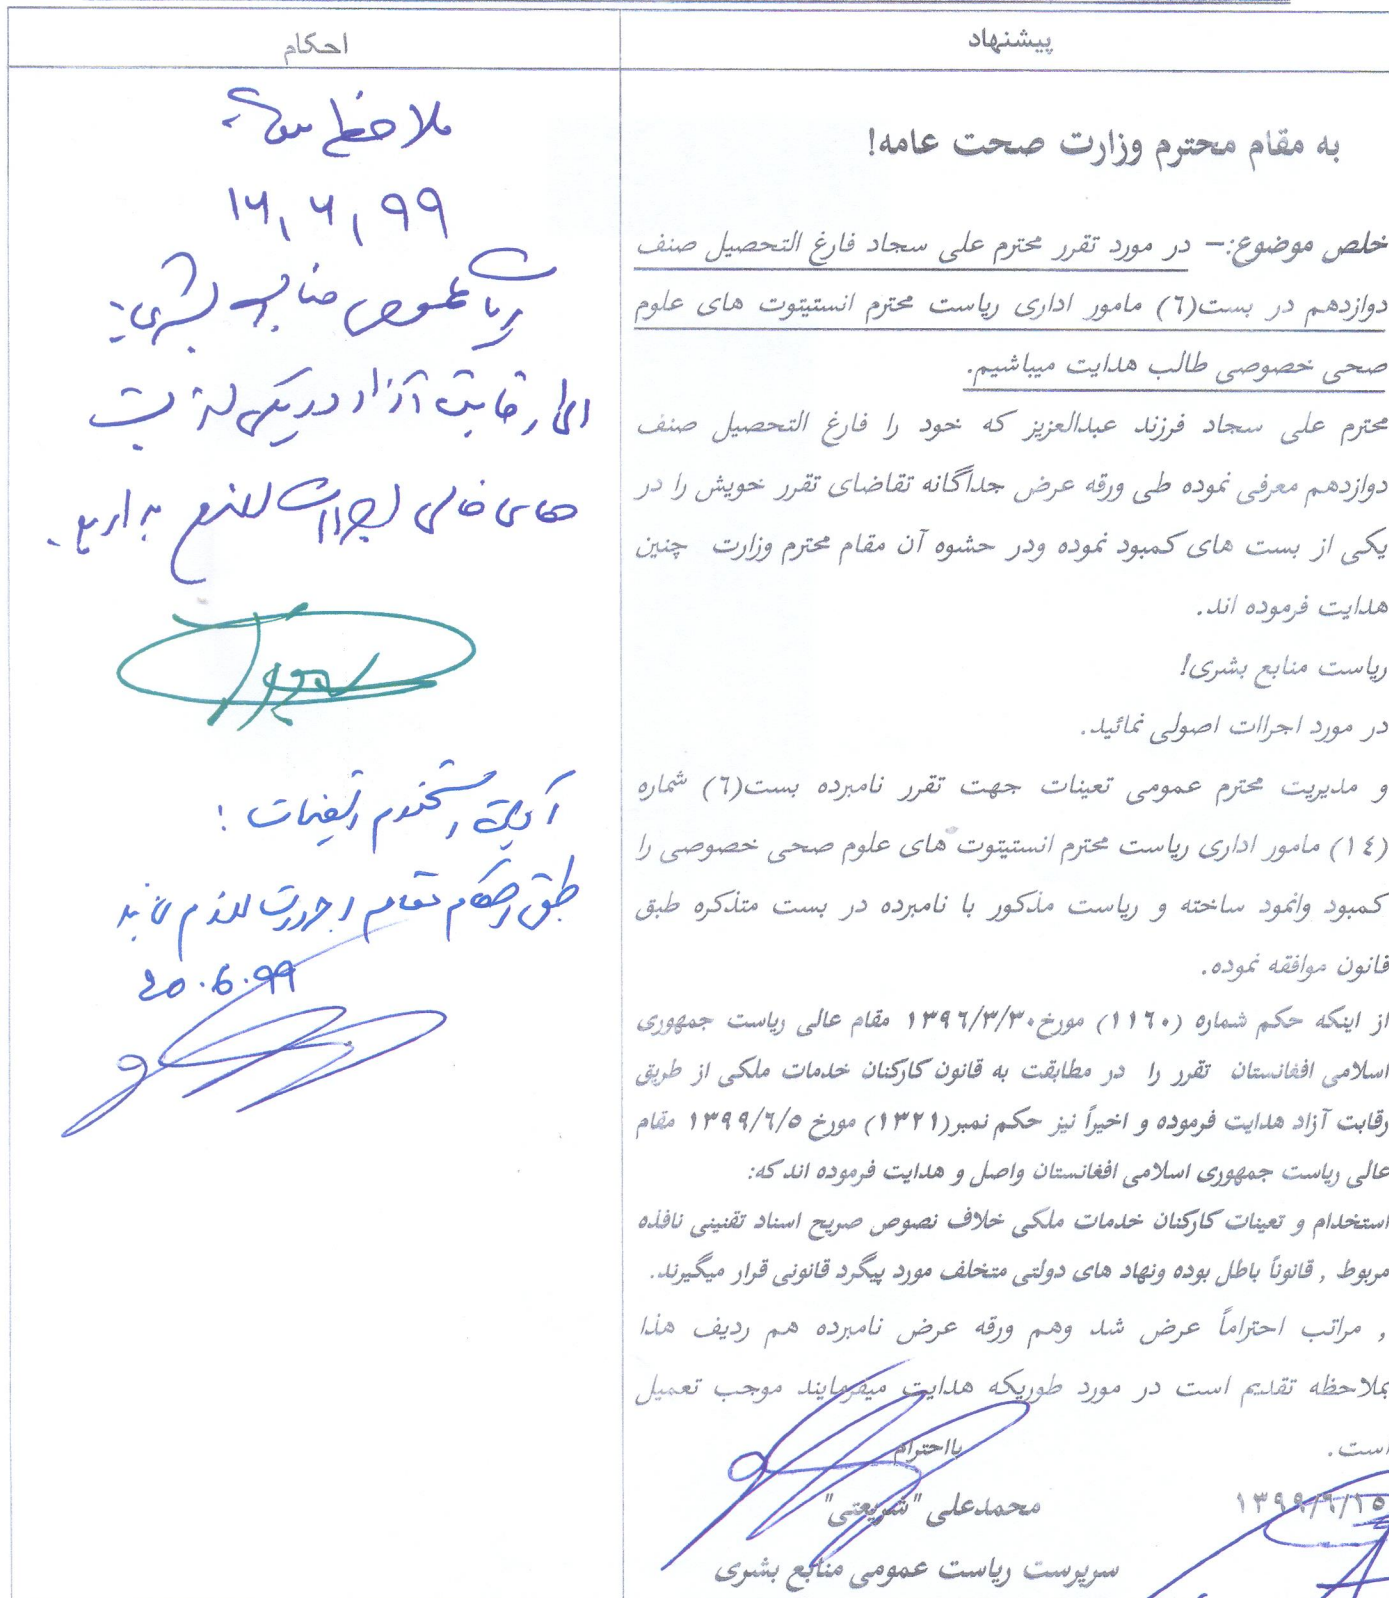 پیشنهاد
به مقام محترم وزارت صحت عامه!
خلص موضوع:- در مورد تقرر محترم علی سجاد فارغ التحصیل صنف
دوازدهم در بست(٦) مامور اداری ریاست محترم انستیتوت های علوم
صحی خصوصی طالب هدایت میباشیم.
محترم علی سجاد فرزند عبدالعزیز که خود را فارغ التحصیل صنف
دوازدهم معرفی نموده طی ورقه عرض جداگانه تقاضای تقرر خویش را در
یکی از بست های کمبود نموده ودر حشوه آن مقام محترم وزارت چنین
هدایت فرموده اند.
ریاست منابع بشری!
در مورد اجراات اصولی نمائید.
و مدیریت محترم عمومی تعینات جهت تقرر نامبرده بست(٦) شماره
(١٤) مامور اداری ریاست محترم انستیتوت های علوم صحی خصوصی را
کمبود وانمود ساخته و ریاست مذکور با نامبرده در بست متذکره طبق
قانون موافقه نموده.
از اینکه حکم شماره (١١٦٠) مورخ١٣٩٦/٣/٣٠ مقام عالی ریاست جمهوری
اسلامی افغانستان تقرر را در مطابقت به قانون کارکنان خدمات ملکی از طریق
رقابت آزاد هدایت فرموده و اخیراً نیز حکم نمبر(١٣٢١) مورخ ١٣٩٩/٦/٥ مقام
عالی ریاست جمهوری اسلامی افغانستان واصل و هدایت فرموده اند که:
استخدام و تعینات کارکنان خدمات ملکی خلاف نصوص صریح اسناد تقنینی نافذه
مربوط , قانوناً باطل بوده ونهاد های دولتی متخلف مورد پیگرد قانونی قرار میگیرند.
, مراتب احتراماً عرض شد وهم ورقه عرض نامبرده هم ردیف هذا
بملاحظه تقدیم است در مورد طوریکه هدایت میفرمایند موجب تعمیل
است.
بااحترام
محمدعلی "شریعتی"
١٣٩٩/٦/١٥
سرپرست ریاست عمومی منابع بشری
احکام
ملاحظه شد
١٦/٦/٩٩
ریاست عمومی منابع بشری:
رقابت آزاد در یکی از بست
های خالی اجراات لازم بدارید.
آمریت استخدام و تعینات :
طبق احکام مقام اجراات لازم نماید
20.6.99